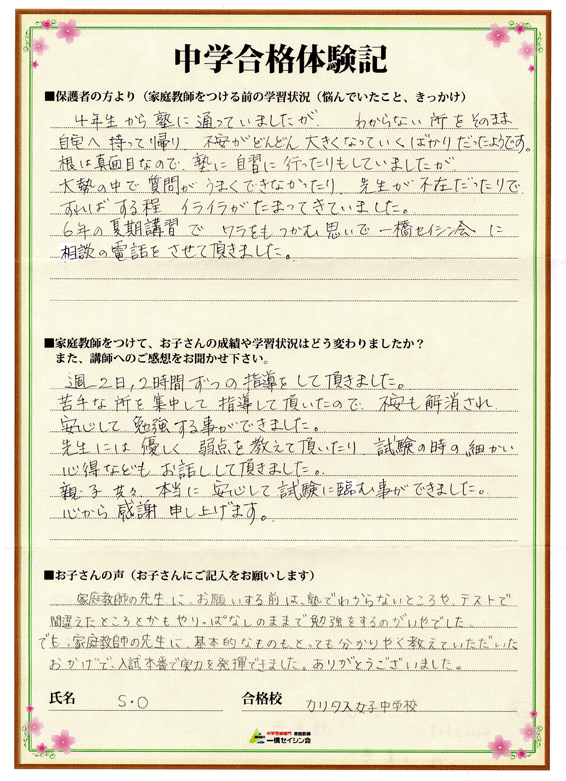 中学合格体験記
■保護者の方より（家庭教師をつける前の学習状況（悩んでいたこと、きっかけ）
4年生から塾に通っていましたが、 わからない所をそのまま
自宅へ持って帰り、不安がどんどん大きくなっていくばかりだったようです。
根は真面目なので、塾に自習に行ったりもしていましたが、
大勢の中で質問がうまくできなかったり、先生が不在だったりで、
すればする程イライラがたまってきていました。
6年の夏期講習でワラをもつかむ思いで一橋セイシン会に
相談の電話をさせて頂きました。
■家庭教師をつけて、お子さんの成績や学習状況はどう変わりましたか？
また、講師へのご感想をお聞かせ下さい。
週2日,2時間ずつの指導をして頂きました。
苦手な所を集中して指導して頂いたので、不安も解消され、
安心して勉強する事ができました。
先生には優しく、弱点を教えて頂いたり、試験の時の細かい
心得などもお話しして頂きました。
親・子共々、本当に安心して試験に臨む事ができました。
心から感謝申し上げます。
■お子さんの声（お子さんにご記入をお願いします）
家庭教師の先生に、お願いする前は、塾でわからないところや、テストで
間違えたところとかもやりっぱなしのままで勉強をするのがいやでした。
でも、家庭教師の先生に、基本的なものも、とっても分かりやく教えていただいた
おかげで、入試本番で実力を発揮できました。ありがとうございました。
氏名 S・O 合格校 カリタス女子中学校
中学受験専門 家庭教師
一橋セイシン会